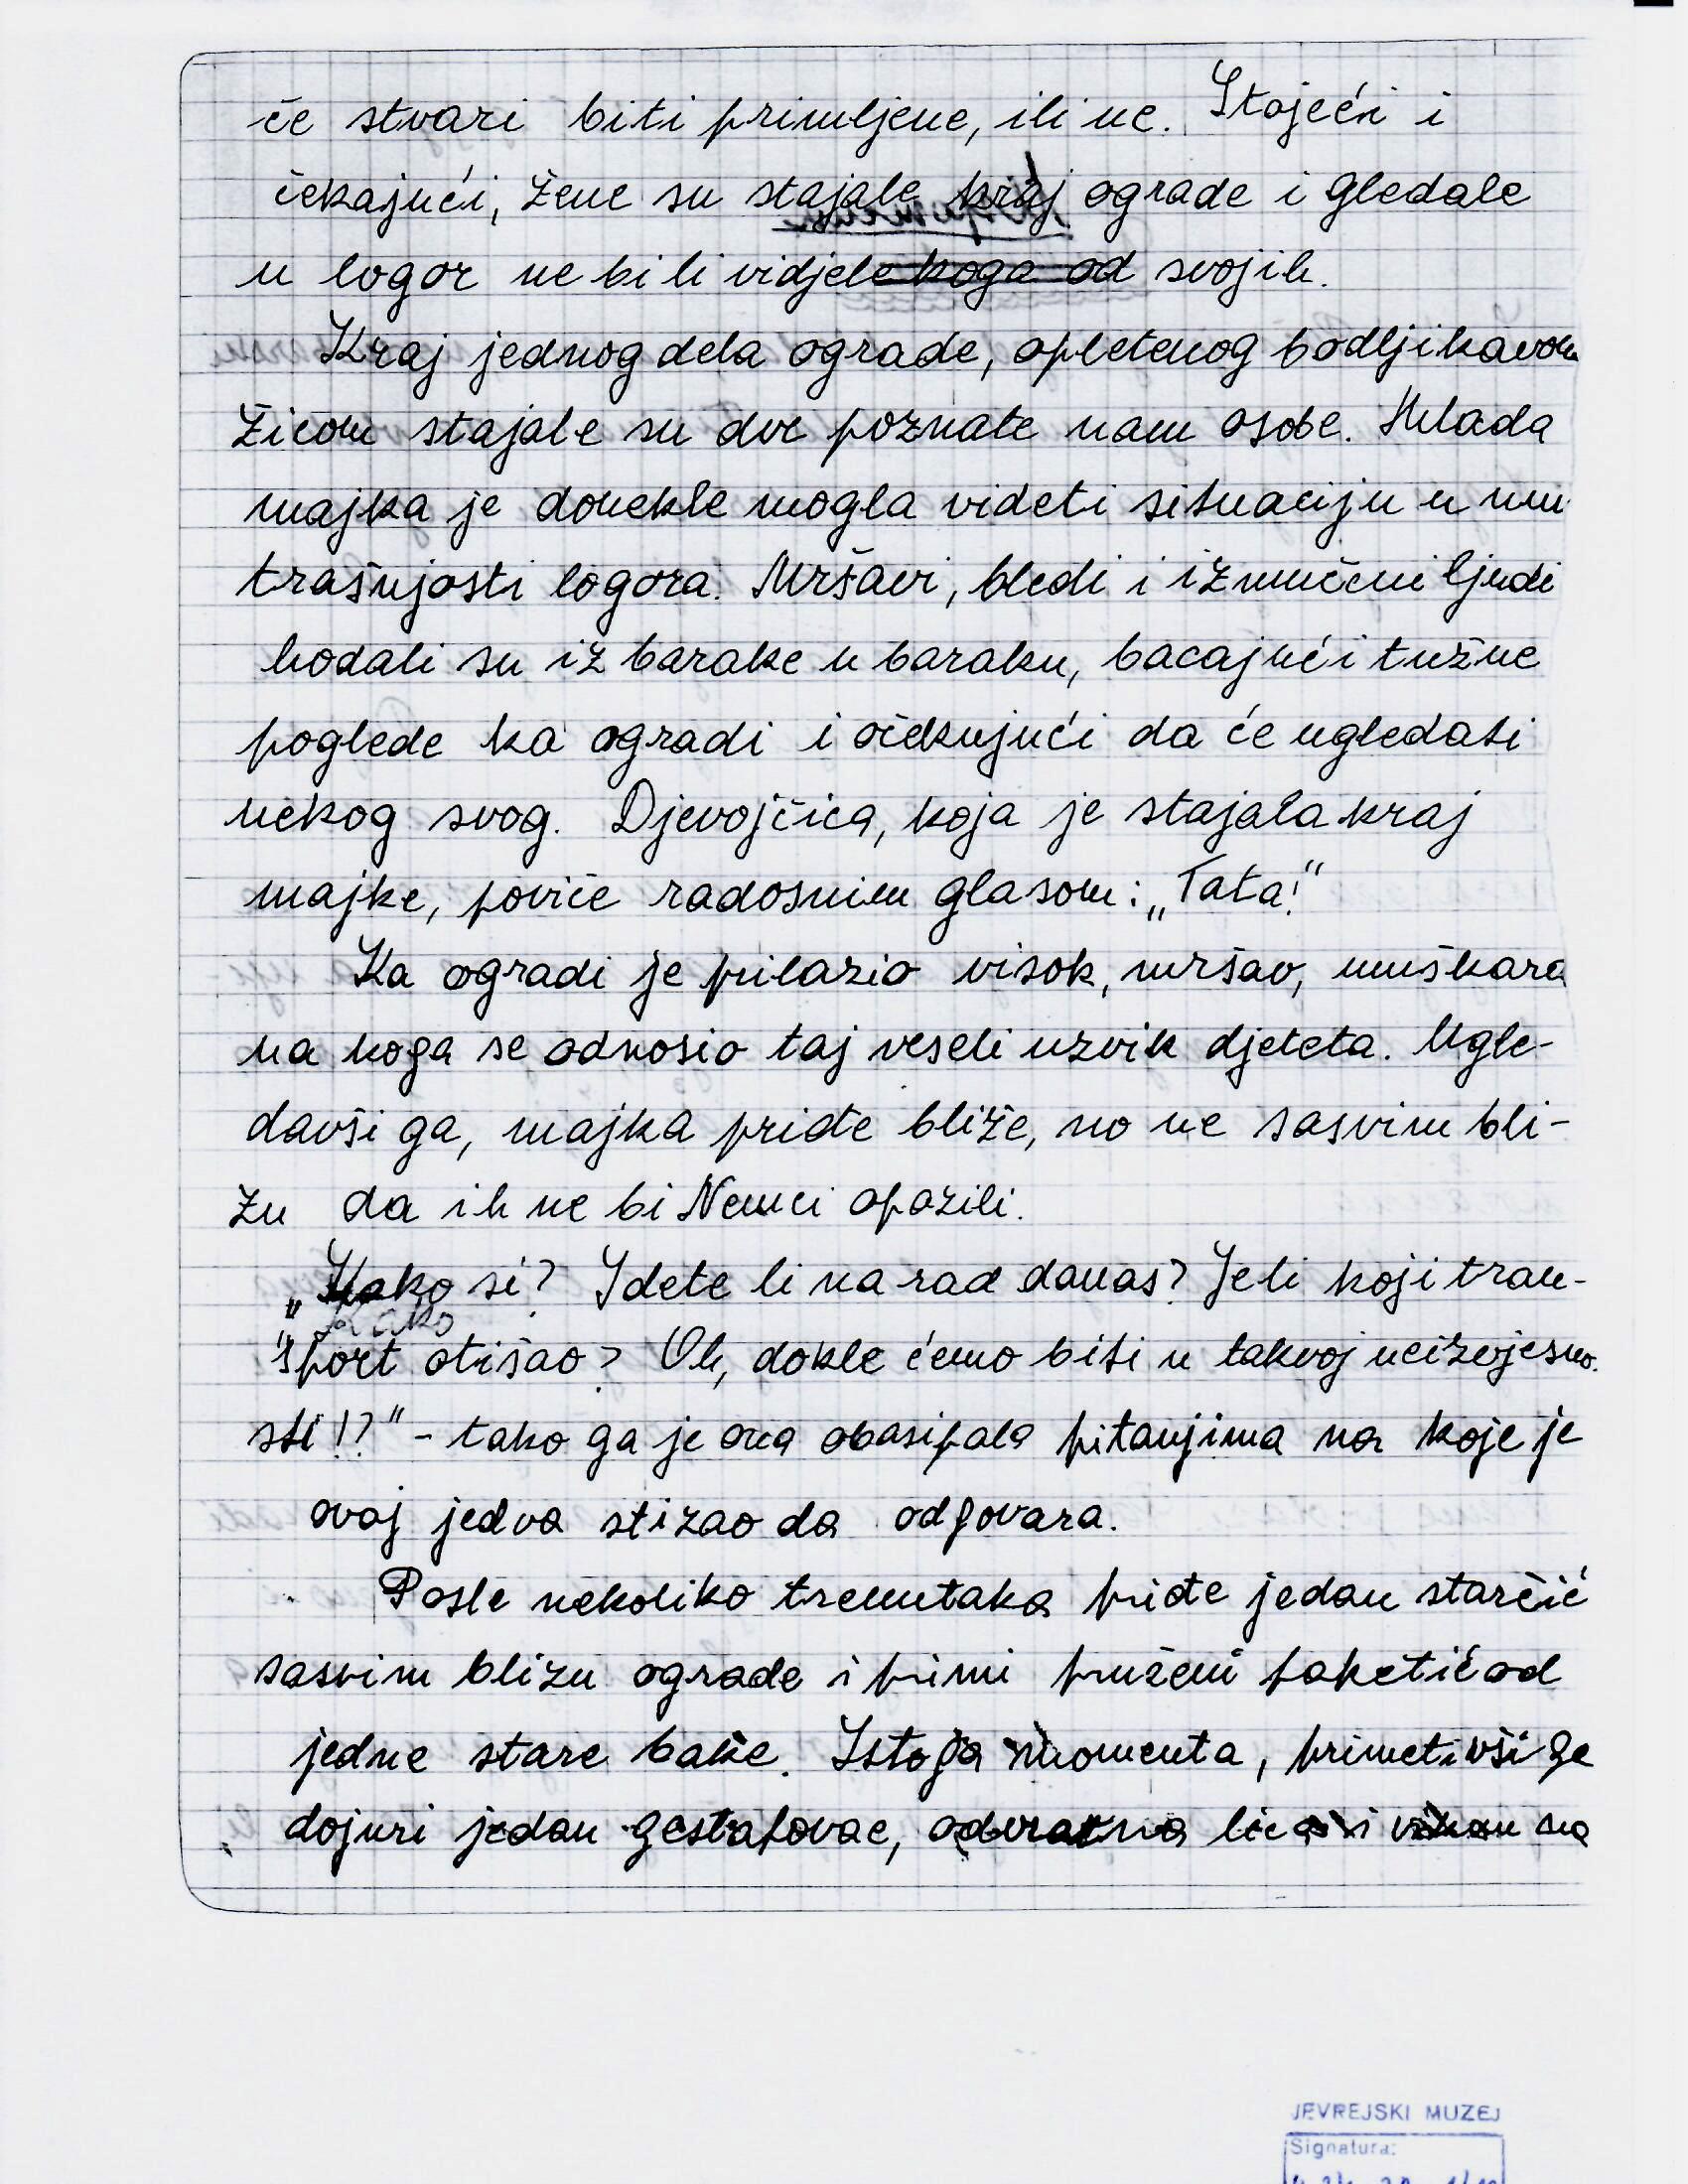 će stvari biti primljene, ili ne. Stojeći i
čekajući, žene su stajale kraj ograde i gledale
u logor ne bi li vidjele koga od svojih.
Kraj jednog dela ograde, opletenog bodljikavom
žicom stajale su dve poznate nam osobe. Mlada
majka je donekle mogla videti situaciju u unu
trašnjosti logora. Mršavi, bledi i izmučeni ljudi
hodali su iz barake u baraku, bacajući tužne
poglede ka ogradi i očekujući da će ugledati
nekog svog. Djevojčica, koja je stajala kraj
majke, poviče radosnim glasom: „Tata!"
Ka ogradi je prilazio visok, mršav, muškara
na koga se odnosio taj veseli uzvik djeteta. Ugle-
davši ga, majka priđe bliže, no ne sasvim bli-
zu da ih ne bi Nemci opazili.
„Kako si? Idete li na rad danas? Je li koji tran-
Kako
sport otišao? Oh, dokle ćemo biti u takvoj neizvjesno-
sti!?" - tako ga je ona obasipala pitanjima na koje je
ovaj jedva stizao da odgovara.
Posle nekoliko trenutaka priđe jedan starčić
sasvim blizu ograde i primi pruženi paketić od
jedne stare bake. Istoga momenta, primetivši ga
dojuri jedan gestapovac, odvratna lica i na
JEVREJSKI MUZEJ
Signatura: